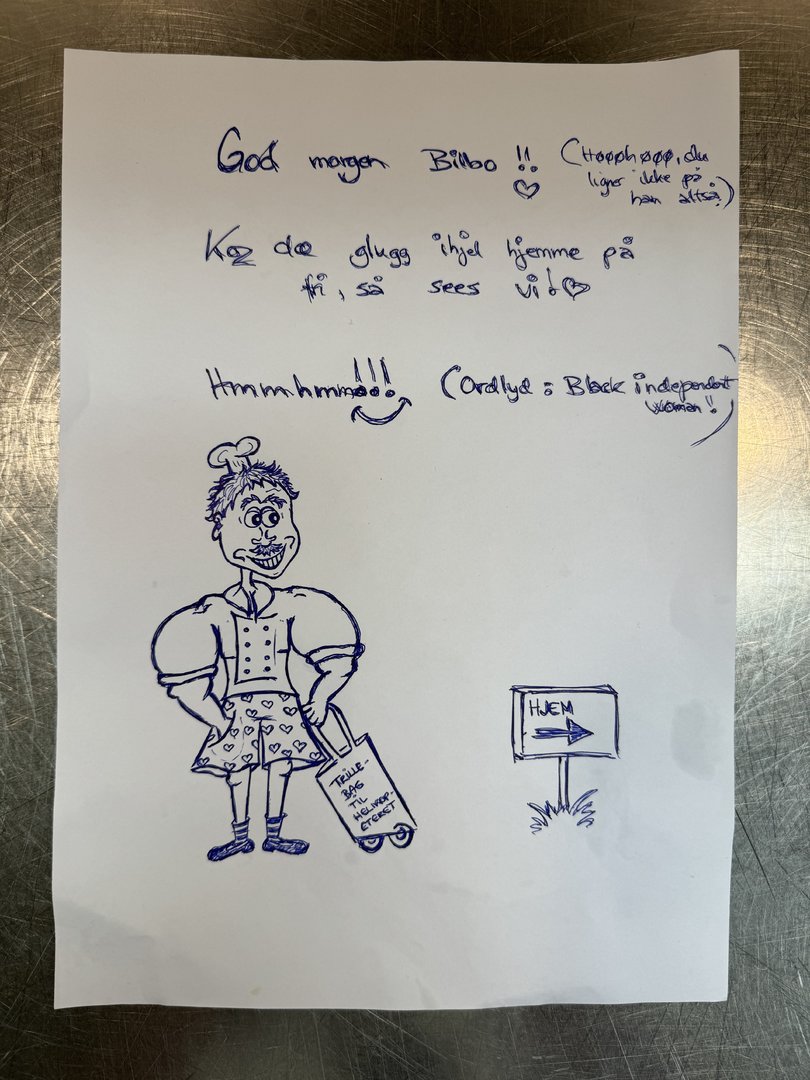 God morgen Bilbo !! ♡ (Høøøhøøø, du
ligner ikke på
han altså!)
Koz de glugg ihjel hjemme på
fri, så sees vi! ♡
Hmmhmmm!!! (Ordlyd : Black independent
woman!!)
HJEM
TRILLE-
BAG
TIL
HELIKOP-
ETERET